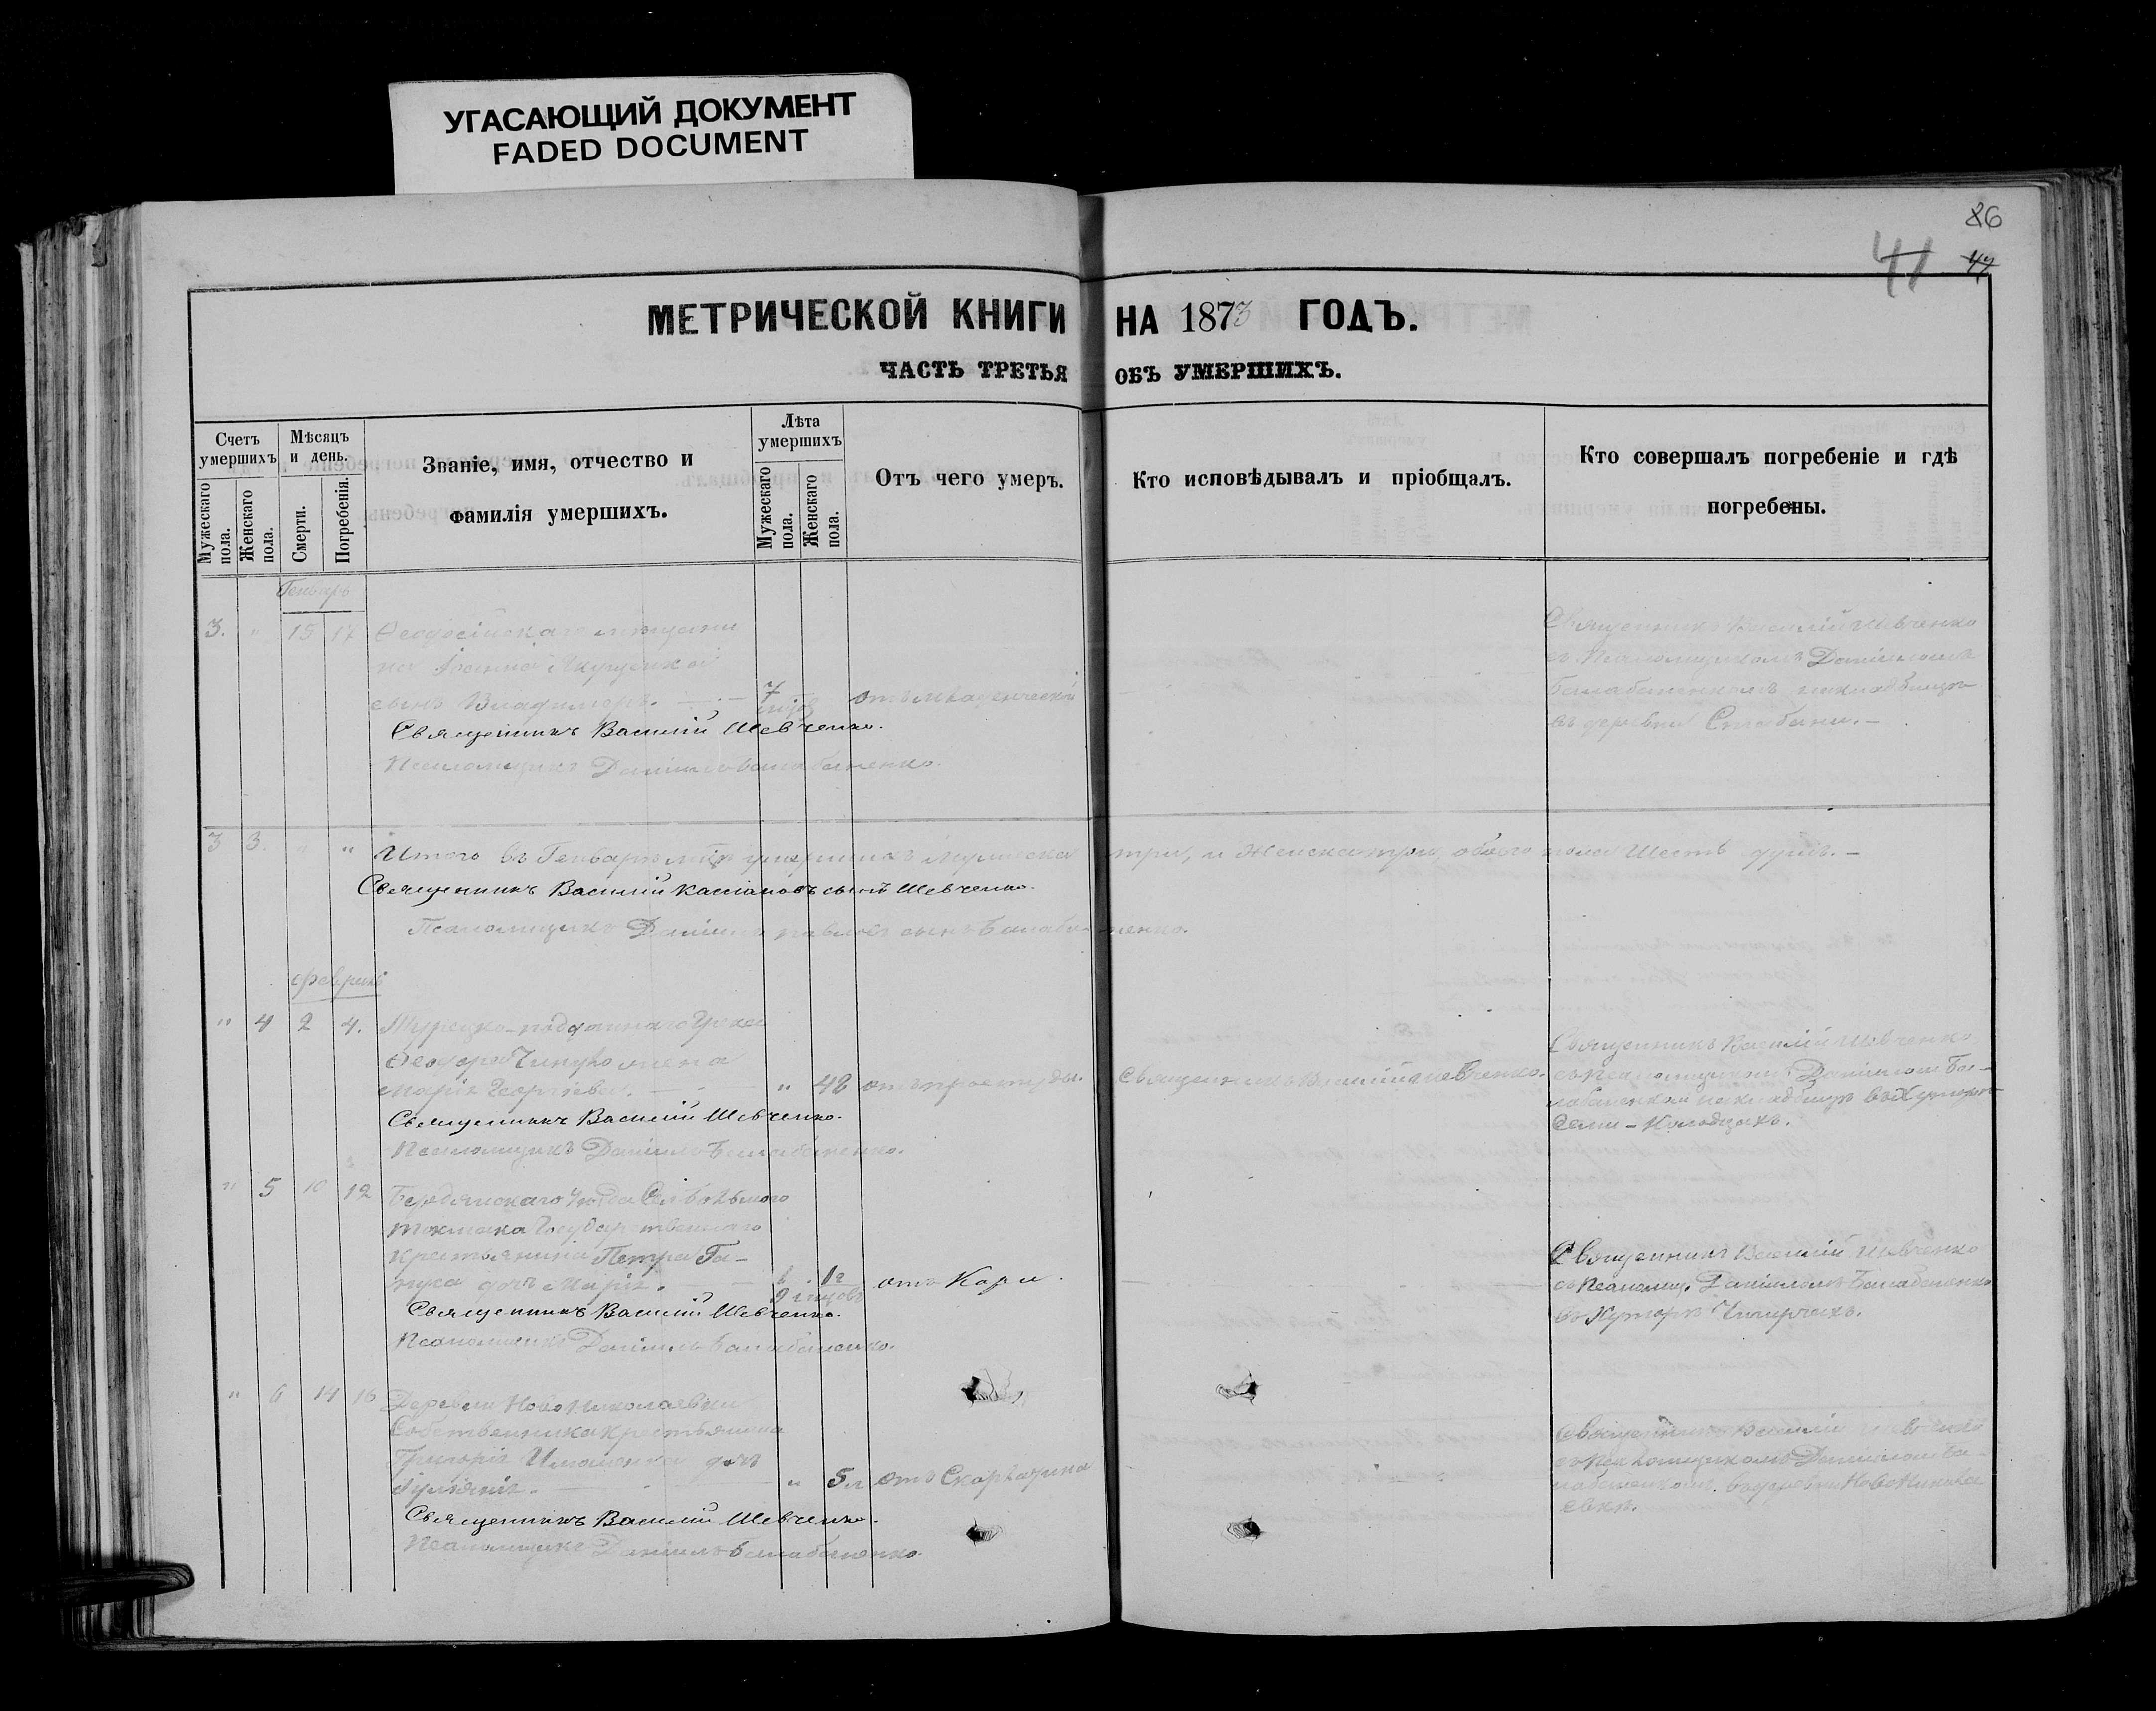 УГАСАЮЩИЙ ДОКУМЕНТ
FADED DOCUMENT
86
41 47
МЕТРИЧЕСКОЙ КНИГИ НА 1873 ГОДЪ.
ЧАСТЬ ТРЕТЬЯ ОБЪ УМЕРШИХЪ.
Счетъ умершихъ
Мужескаго пола.
Женскаго пола.
Мѣсяцъ и день.
Смерти.
Погребенія.
Званіе, имя, отчество и
фамилія умершихъ.
Лѣта умершихъ
Мужескаго пола.
Женскаго пола.
Отъ чего умеръ.
Кто исповѣдывалъ и пріобщалъ.
Кто совершалъ погребеніе и гдѣ
погребены.
Генварь
3. " 15 17 Ѳеодосійскаго мѣщани
на
сынъ Владимиръ. 7 отъ младенческой
Священникъ Василій Шевченко.
Псаломщикъ Даніилъ Балабаненко.
Священникъ Василій Шевченко
съ Псаломщикомъ Даніиломъ
Балабаненкомъ на кладбищѣ
въ деревни
3 3. " " Итого въ Генварѣ м-цѣ умершихъ мужеска три, и женска три, обоего пола шесть душъ.
Священникъ Василій Кассіановъ сынъ Шевченко.
Псаломщикъ Даніилъ Павловъ сынъ Балабаненко.
Февраль
" 4 2 4. Турецко-подданнаго Грека
Ѳеодора
Марія Георгіева. " 48 отъ простуды. Священникъ Василій Шевченко.
Священникъ Василій Шевченко.
Псаломщикъ Даніилъ Балабаненко.
Священникъ Василій Шевченко
съ Псаломщикомъ Даніиломъ Ба-
лабаненкомъ на кладбищѣ въ Хуторѣ
Семи-Колодцахъ.
" 5 10 12 Бердянскаго уѣзда
Токмака Государственнаго
крестьянина Петра Га-
дочь Марія. 1 г. 9 мѣсцовъ отъ Кори.
Священникъ Василій Шевченко.
Псаломщикъ Даніилъ Балабаненко.
Священникъ Василій Шевченко
съ Псаломщ. Даніиломъ Балабаненко
въ Хуторѣ
" 6 14 16 Деревни Ново Николаевки
Собственника крестьянина
Григорія дочь
" 5 л отъ Скарлатина
Священникъ Василій Шевченко.
Псаломщикъ Даніилъ Балабаненко.
Священникъ Василій Шевченко
съ Псаломщикомъ Даніиломъ Ба-
лабаненкомъ. въ деревни Ново Никола
евкѣ.